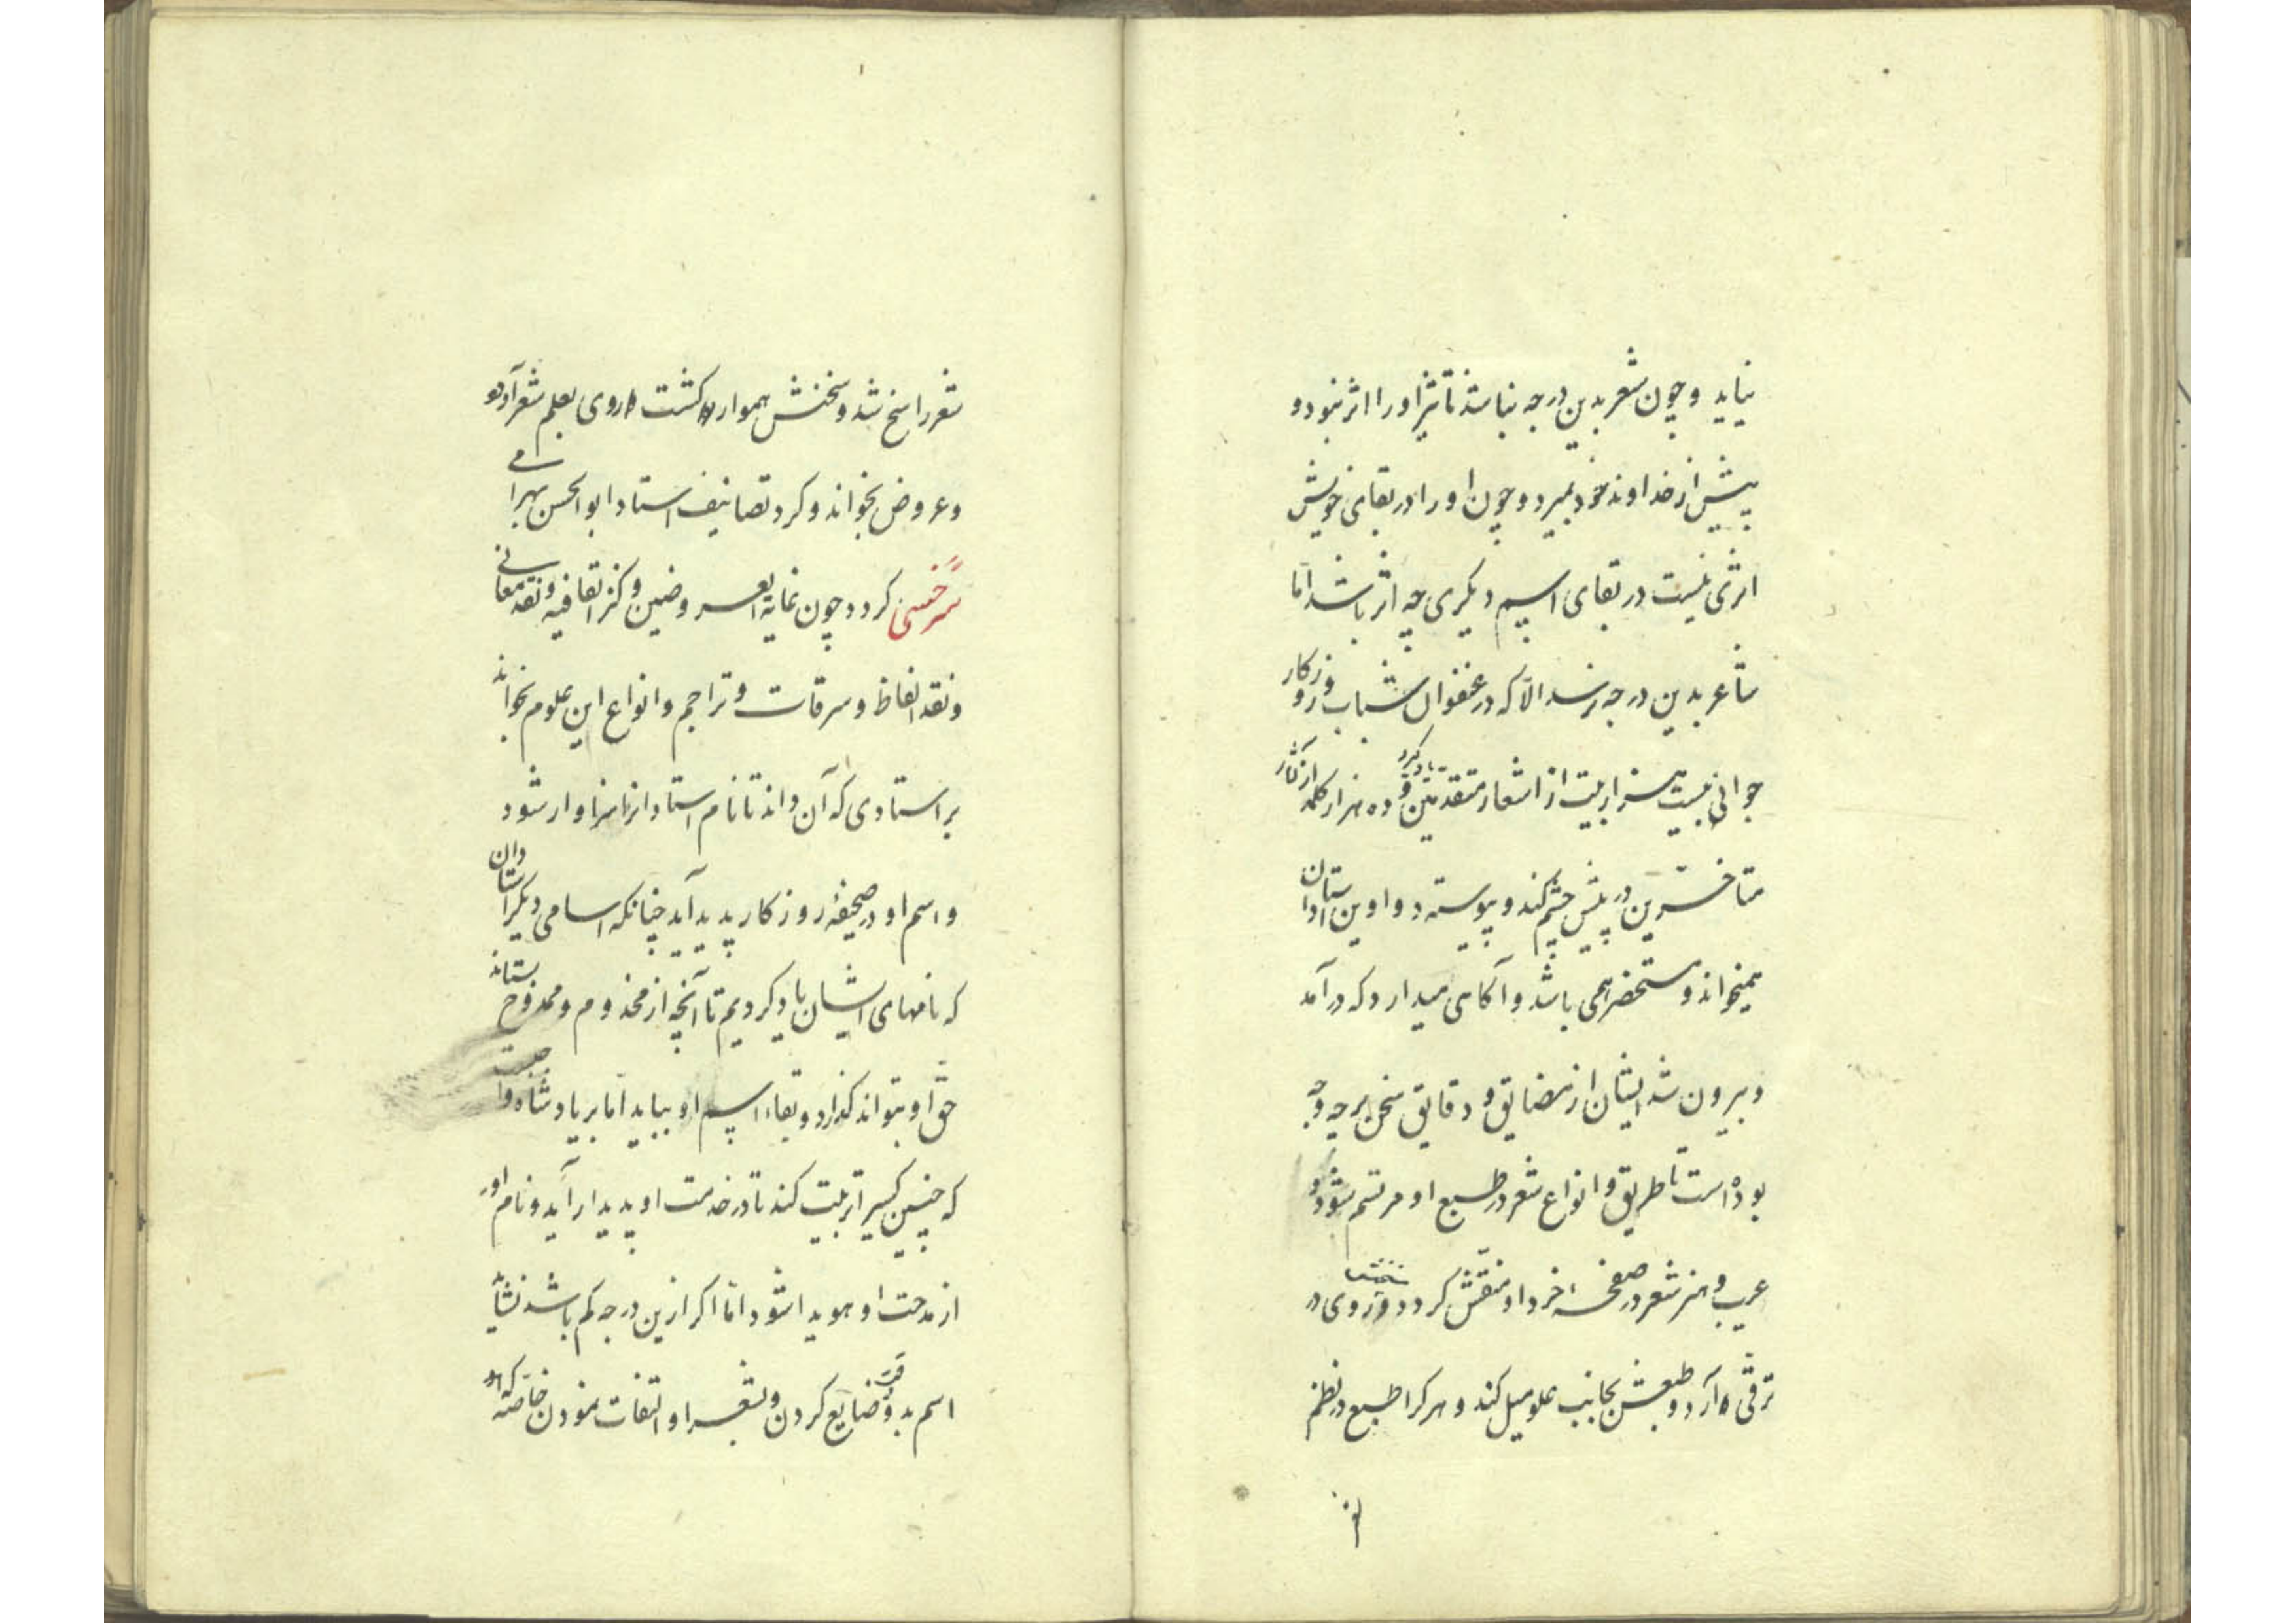 نیاید و چون شعر بدین درجه نباشد تاثیر او را اثر نبود و
پیش از خداوند خود بمیرد و چون او را در بقای خویش
اثری نیست در بقای اسم دیگری چه اثر باشد اما
شاعر بدین درجه نرسد الا که در عنفوان شباب و روزگار
جوانی بیست هزار بیت از اشعار متقدمین یاد گیرد و ده هزار کلمه از آثار
متاخرین در پیش چشم کند و پیوسته دواوین استادان
همیخواند و مستحضر همی باشد و آگاهی میدارد که درآمد
و بیرون شد ایشان از مضایق و دقایق سخن بر چه وجه
بوده است تا طریق و انواع شعر در طبع او مرتسم شود و
عیب و هنر شعر در صفحه خرد او منقش گردد و روی در
ترقی آرد و طبعش بجانب علو میل کند و هر کرا طبع در نظم
شعر راسخ شد و سخنش هموار گشت روی بعلم شعر آورد
و عروض بخواند و گرد تصانیف استاد ابوالحسن بهرامی
سرخسی گردد چون غایة العروضین و کنز القافیه و نقد معانی
و نقد الفاظ و سرقات و تراجم و انواع این علوم بخواند
بر استادی که آن داند تا نام استاد را سزاوار شود
و اسم او در صحیفه روزگار پدید آید چنانکه اسامی دیگر استادان
که نامهای ایشان یاد کردیم تا آنچه از مخدوم و ممدوح بستاند
حق او بتواند گذارد و بقاء اسم او بباید اما بر پادشاه واجبست
که چنین کسیرا تربیت کند تا در خدمت او پدیدار آید و نام او
از مدحت او هویدا شود اما اگر ازین درجه کم باشد نشاید
اسم بدو ضایع کردن و بشعر او التفات نمودن خاصه که او